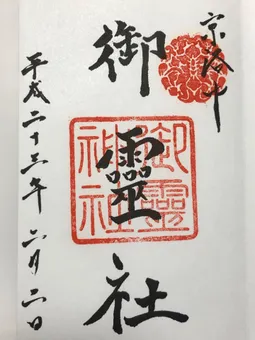 京洛中
御靈社
御靈神社
平成二十三年六月二日